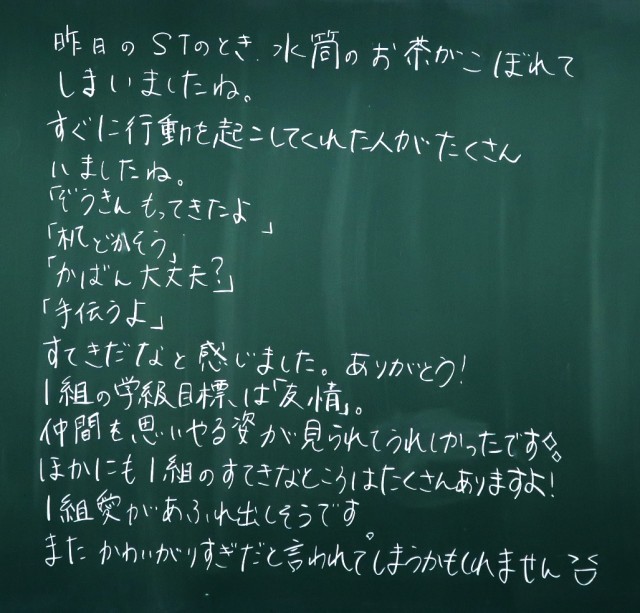 昨日のSTのとき、水筒のお茶がこぼれて
しまいましたね。
すぐに行動を起こしてくれた人がたくさん
いましたね。
「ぞうきんもってきたよ」
「机どかそう」
「かばん大丈夫?」
「手伝うよ」
すてきだなと感じました。ありがとう!
1組の学級目標は「友情」。
仲間を思いやる姿が見られてうれしかったです
ほかにも1組のすてきなところはたくさんありますよ!
1組愛があふれ出しそうです。
またかわいがりすぎだと言われてしまうかもしれません